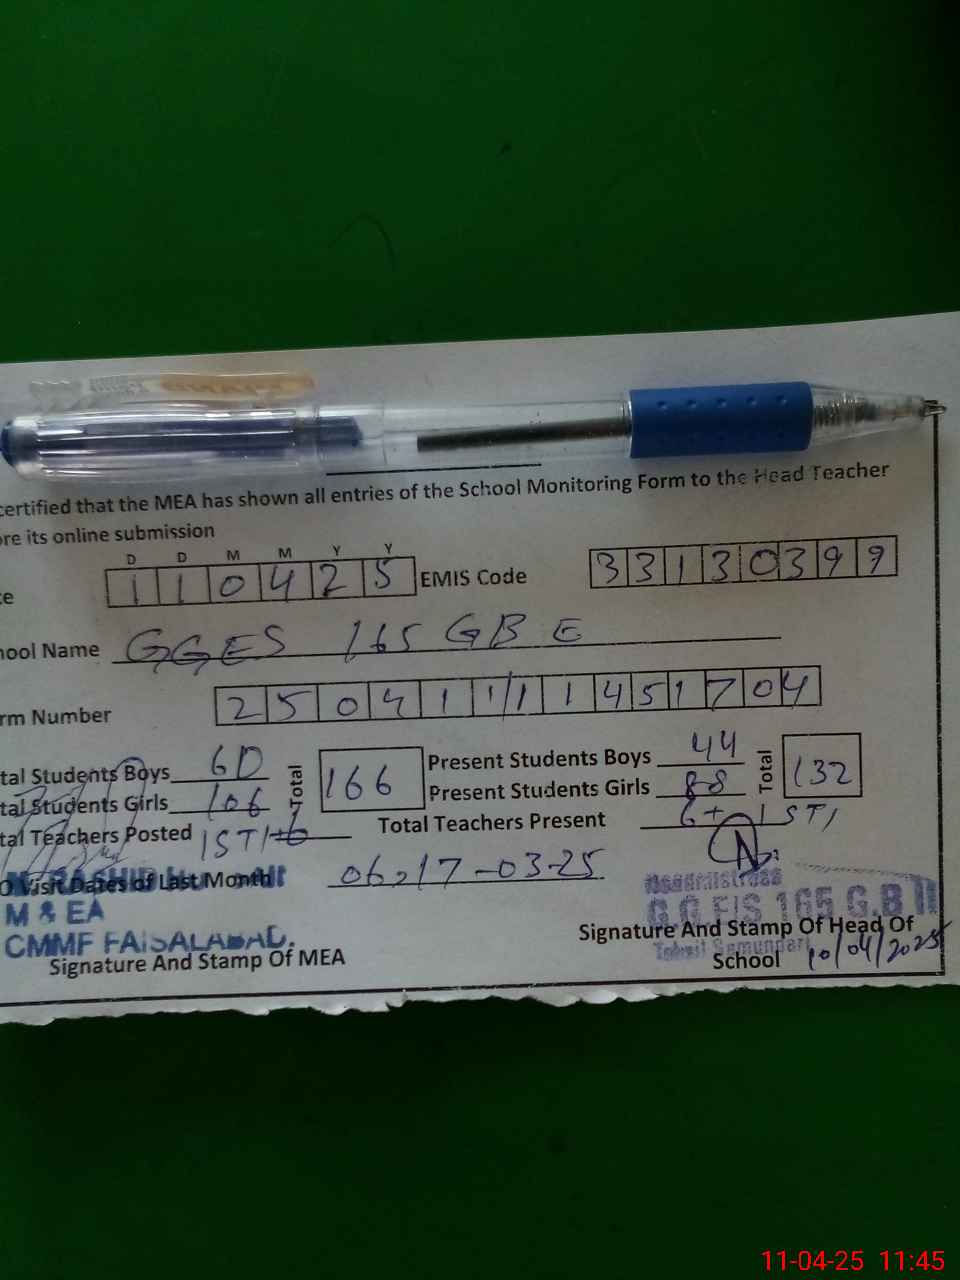 certified that the MEA has shown all entries of the School Monitoring Form to the Head Teacher
ore its online submission
D D M M Y Y
te 1 1 0 4 2 5 EMIS Code 3 3 1 3 0 3 9 9
hool Name GGES 165 GB E
rm Number 2 5 0 4 1 1 1 1 4 5 1 7 0 4
tal Students Boys 60 Total 166 Present Students Boys 44 Total 132
tal Students Girls 106 Present Students Girls 88
tal Teachers Posted 1STI+6 Total Teachers Present 6+ 1STI
O Visit Dates of Last Month 06,17-03-25
M & EA
CMMF FAISALABAD.
Signature And Stamp Of MEA
Headmistress
G.G.E/S 165 G.B
Signature And Stamp Of Head Of
School
Tehsil Samundari
10/04/2025
11-04-25 11:45